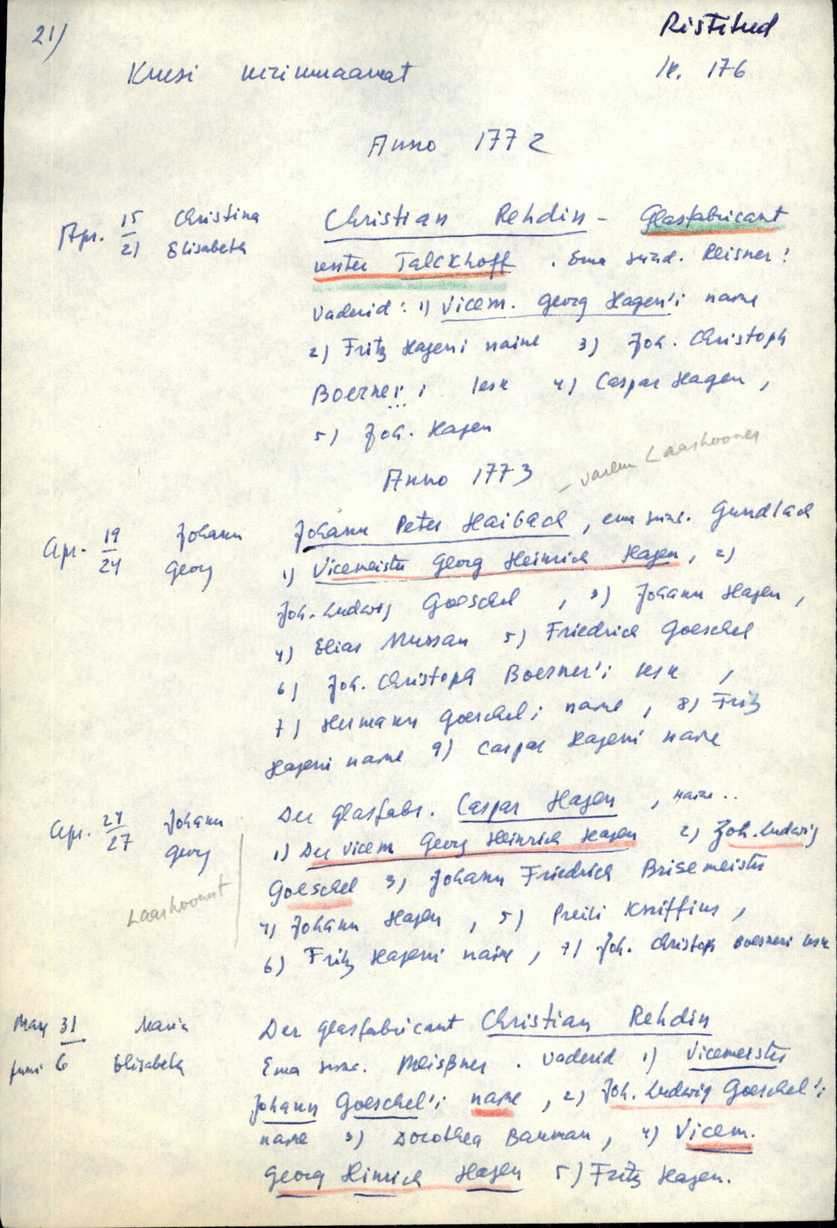 21)
Ristitud
lk. 176
Kursi kirikuraamat
Anno 1772
Apr. 15/21 Christina Elisabeth
Christian Rehdin - Glasfabricant
unter Talckhoff. Ema sünd. Reisner!
Vaderid: 1) Vicem. Georg Hagen'i naine
2) Fritz Hageni naine 3) Joh. Christoph
Boerner'i lesk 4) Caspar Hagen,
5) Joh. Hagen
Anno 1773
- varem Laashoones
Apr. 19/24 Johann Georg
Johann Peter Haibach, ema sünd. Gundlach
1) Vicemeister Georg Heinrich Hagen, 2)
Joh. Ludwig Goeschel, 3) Johann Hagen,
4) Elias Mussan 5) Friedrich Goeschel
6) Joh. Christoph Boesner'i lesk,
7) Hermann Goescheli naine, 8) Fritz
Hageni naine 9) Caspar Hageni naine
Apr. 24/27 Johann Georg
Der Glasfabr. Caspar Hagen, naine..
1) Der Vicem Georg Heinrich Hagen 2) Joh. Ludwig
Goeschel 3) Johann Friedrich Brisemeister
4) Johann Hagen, 5) Preili Kniffius,
6) Fritz Hageni naine, 7) Joh. Christoph Boesneri lesk
May 31 Juni 6 Maria Elisabeth
Der Glasfabricant Christian Rehdin
Ema sünd. Meißner. Vaderid 1) Vicemeister
Johann Goeschel'i naine, 2) Joh. Ludwig Goeschel'i
naine 3) Dorothea Bauman, 4) Vicem.
Georg Hinrich Hagen 5) Fritz Hagen.